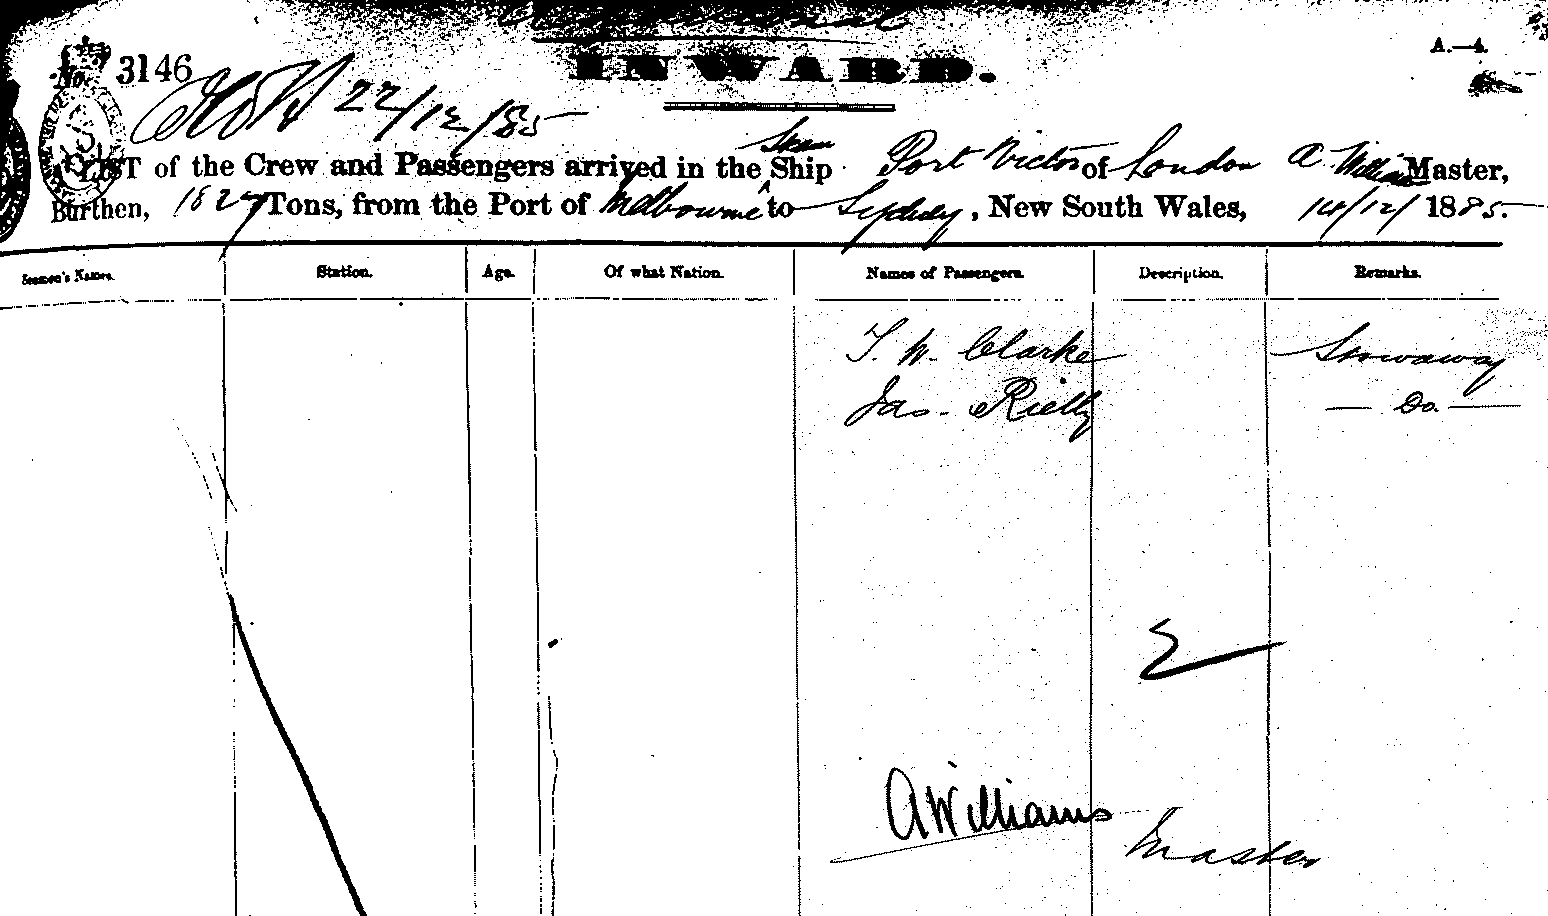 INWARD.
A.—4.
No. 3146
22/12/85
A LIST of the Crew and Passengers arrived in the Steam Ship Port Victor of London A Williams Master,
Burthen, 1827 Tons, from the Port of Melbourne to Sydney, New South Wales, 14/12/ 1885.
Seamen's Names. Station. Age. Of what Nation. Names of Passengers. Description. Remarks.
T. W. Clarke Stowaway
Jas. Rielly — Do. —
A Williams
Master